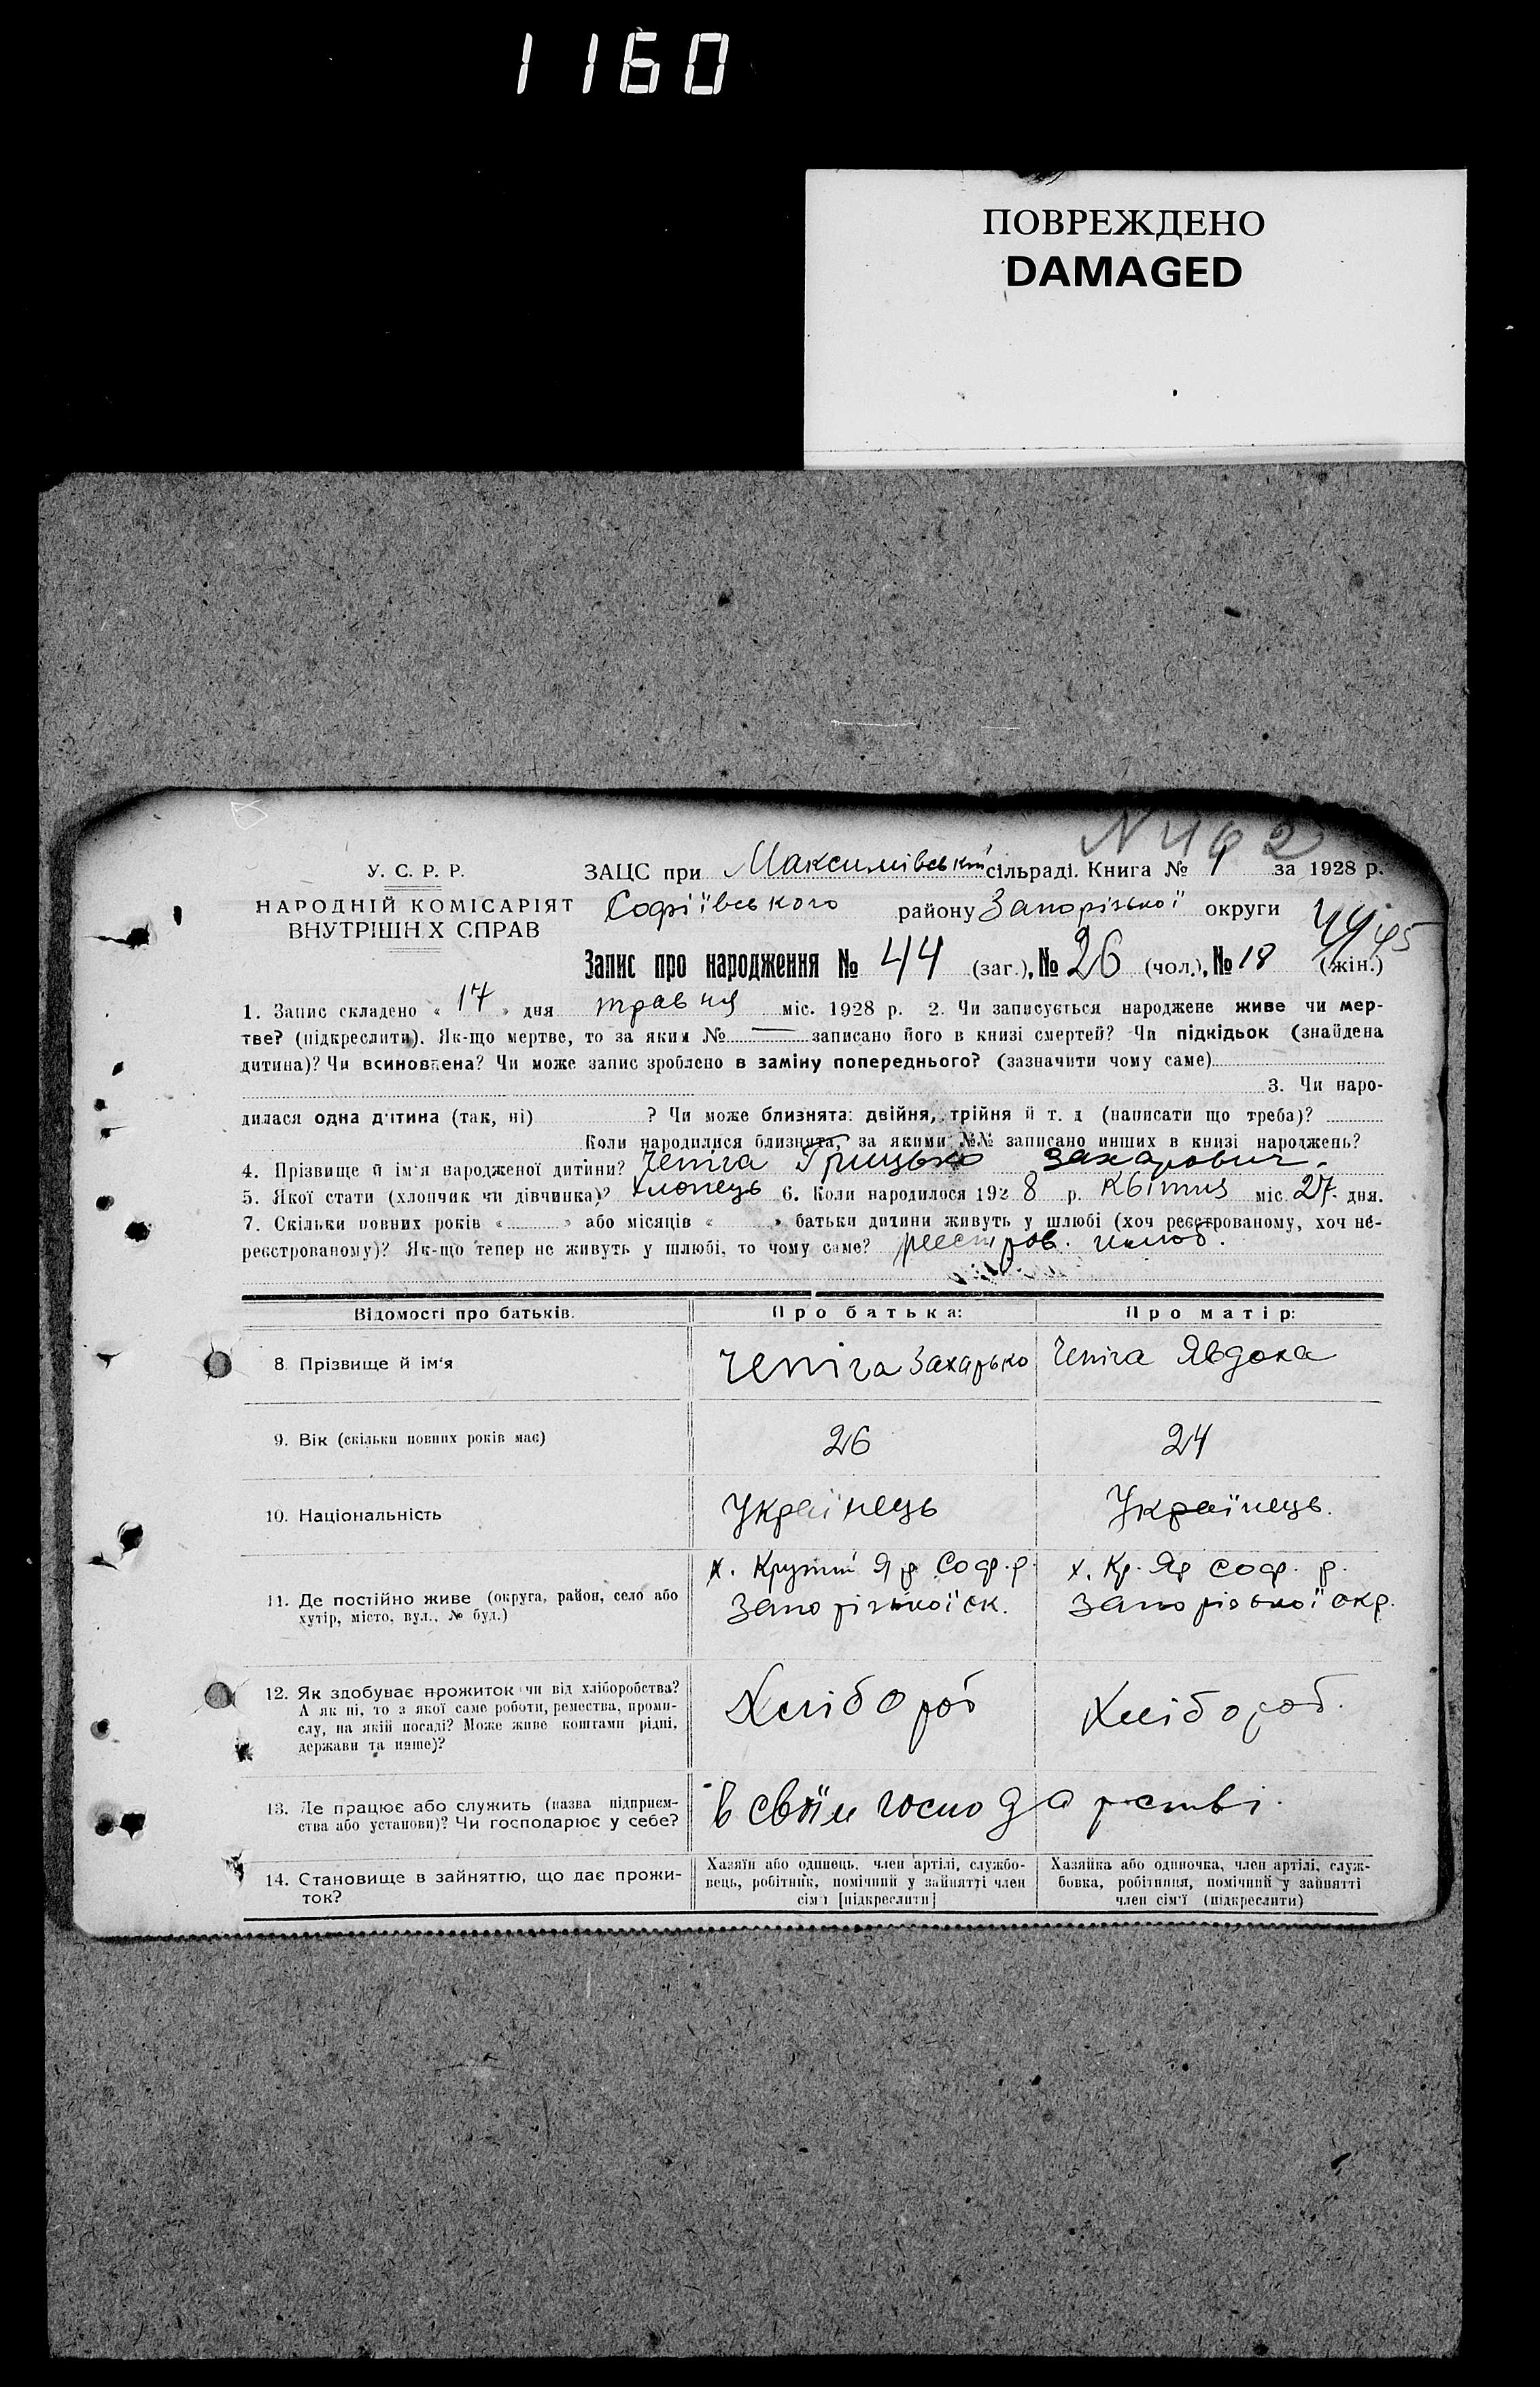 1160
ПОВРЕЖДЕНО
DAMAGED
N 462
У. С. Р. Р.
НАРОДНІЙ КОМІСАРІЯТ
ВНУТРІШН Х СПРАВ
ЗАЦС при Максимівській сільраді. Книга № 1 за 1928 р.
Софіївського району Запорізької округи
Запис про народження № 44 (заг.), № 26 (чол.), № 18 (жін.)
1. Запис складено « 17 » дня травня міс. 1928 р. 2. Чи записується народжене живе чи мер-
тве? (підкреслити). Як-що мертве, то за яким № — записано його в книзі смертей? Чи підкідьок (знайдена
дитина)? Чи всиновлена? Чи може запис зроблено в заміну попереднього? (зазначити чому саме)
3. Чи наро-
дилася одна дитина (так, ні) ? Чи може близнята: двійня, трійня й т. д (написати що треба)?
Коли народилися близнята, за якими №№ записано инших в книзі народжень?
4. Прізвище й ім'я народженої дитини? Чепіга Грицько Захарович.
5. Якої стати (хлопчик чи дівчинка)? Хлопець 6. Коли народилося 1928 р. Квітня міс. 27 дня.
7. Скільки повних років « » або місяців « » батьки дитини живуть у шлюбі (хоч реєстрованому, хоч не-
реєстрованому)? Як-що тепер не живуть у шлюбі, то чому саме? реєстров. шлюб.
Відомості про батьків. Про батька: Про матір:
8. Прізвище й ім'я Чепіга Захарько Чепіга Явдоха
9. Вік (скільки повних років має) 26 24
10. Національність Українець Українець.
11. Де постійно живе (округа, район, село або
хутір, місто, вул., № буд.)
х. Крутий Яр Соф. р.
Запорізької ок.
х. Кр. Яр Соф. р.
Запорізької окр.
12. Як здобуває прожиток чи від хліборобства?
А як ні, то з якої саме роботи, ремества, проми-
слу, на якій посаді? Може живе коштами рідні,
держави та инше)?
Хлібороб
Хлібороб.
13. Де працює або служить (назва підприєм-
ства або установи)? Чи господарює у себе?
в своїм господарстві.
14. Становище в зайняттю, що дає прожи-
ток?
Хазяїн або одинець, член артілі, службо-
вець, робітник, помічний у зайнятті член
сім'ї [підкреслити]
Хазяйка або одиночка, член артілі, служ-
бовка, робітниця, помічний у зайнятті
член сім'ї (підкреслити)